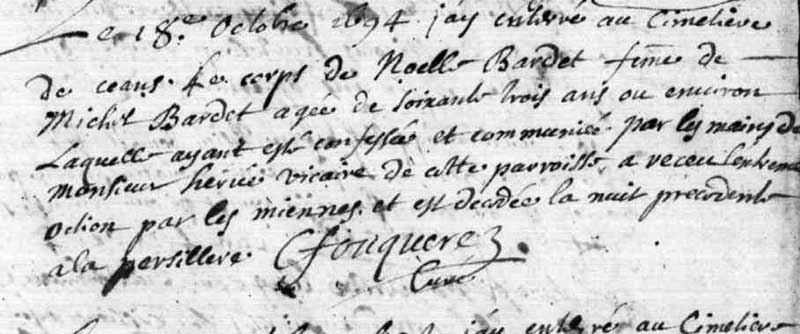 Le 18.e Octobre 1694 j'ay enterré au Cimetiere
de ceans. Le corps de Noelle Bardet féme de
Michel Bardet agée de soixante trois ans ou environ
Laquelle ayant esté confessée et communiée par les mains de
monsieur hervé vicaire de cette parroisse a receu l'extreme
oction par les miennes. et est decedée la nuit precedente
a la persillere. Cfouquerez.
Curé
j'ay enterré au Cimetiere